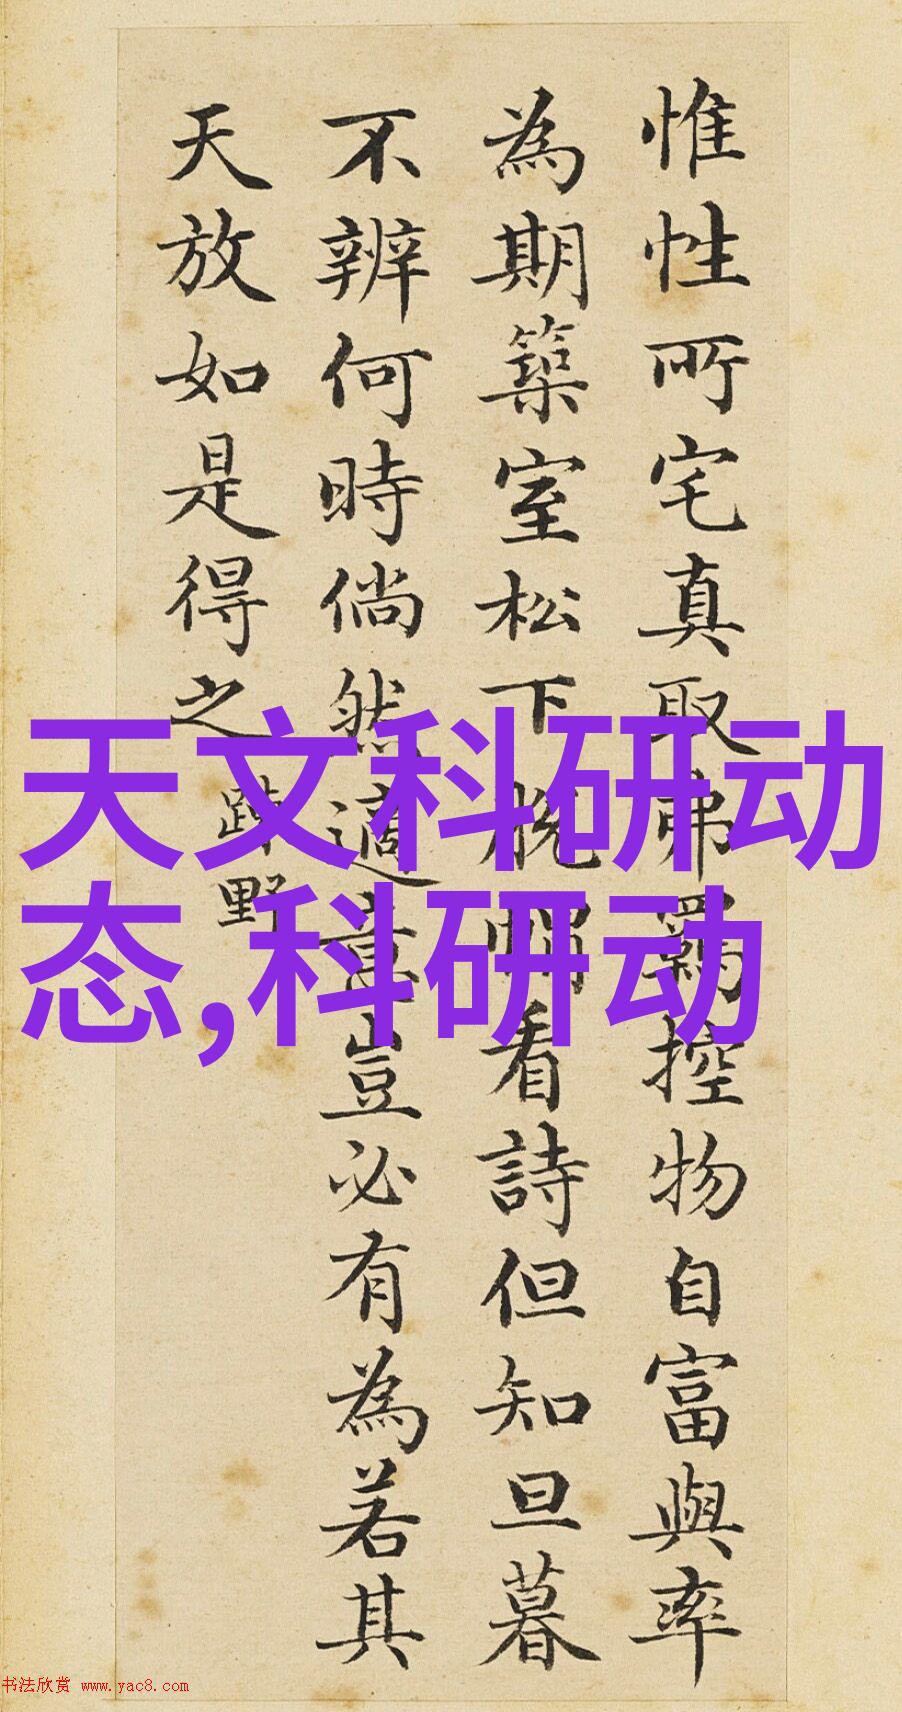 惟性所宅真取弗羈控物自富與率
為期築室松下脱帽看詩但知旦暮
不辨何時倘然適意豈必有為若其
天放如是得之 疎野
天文科研动
态,科研动
书法欣赏 www.yac8.com